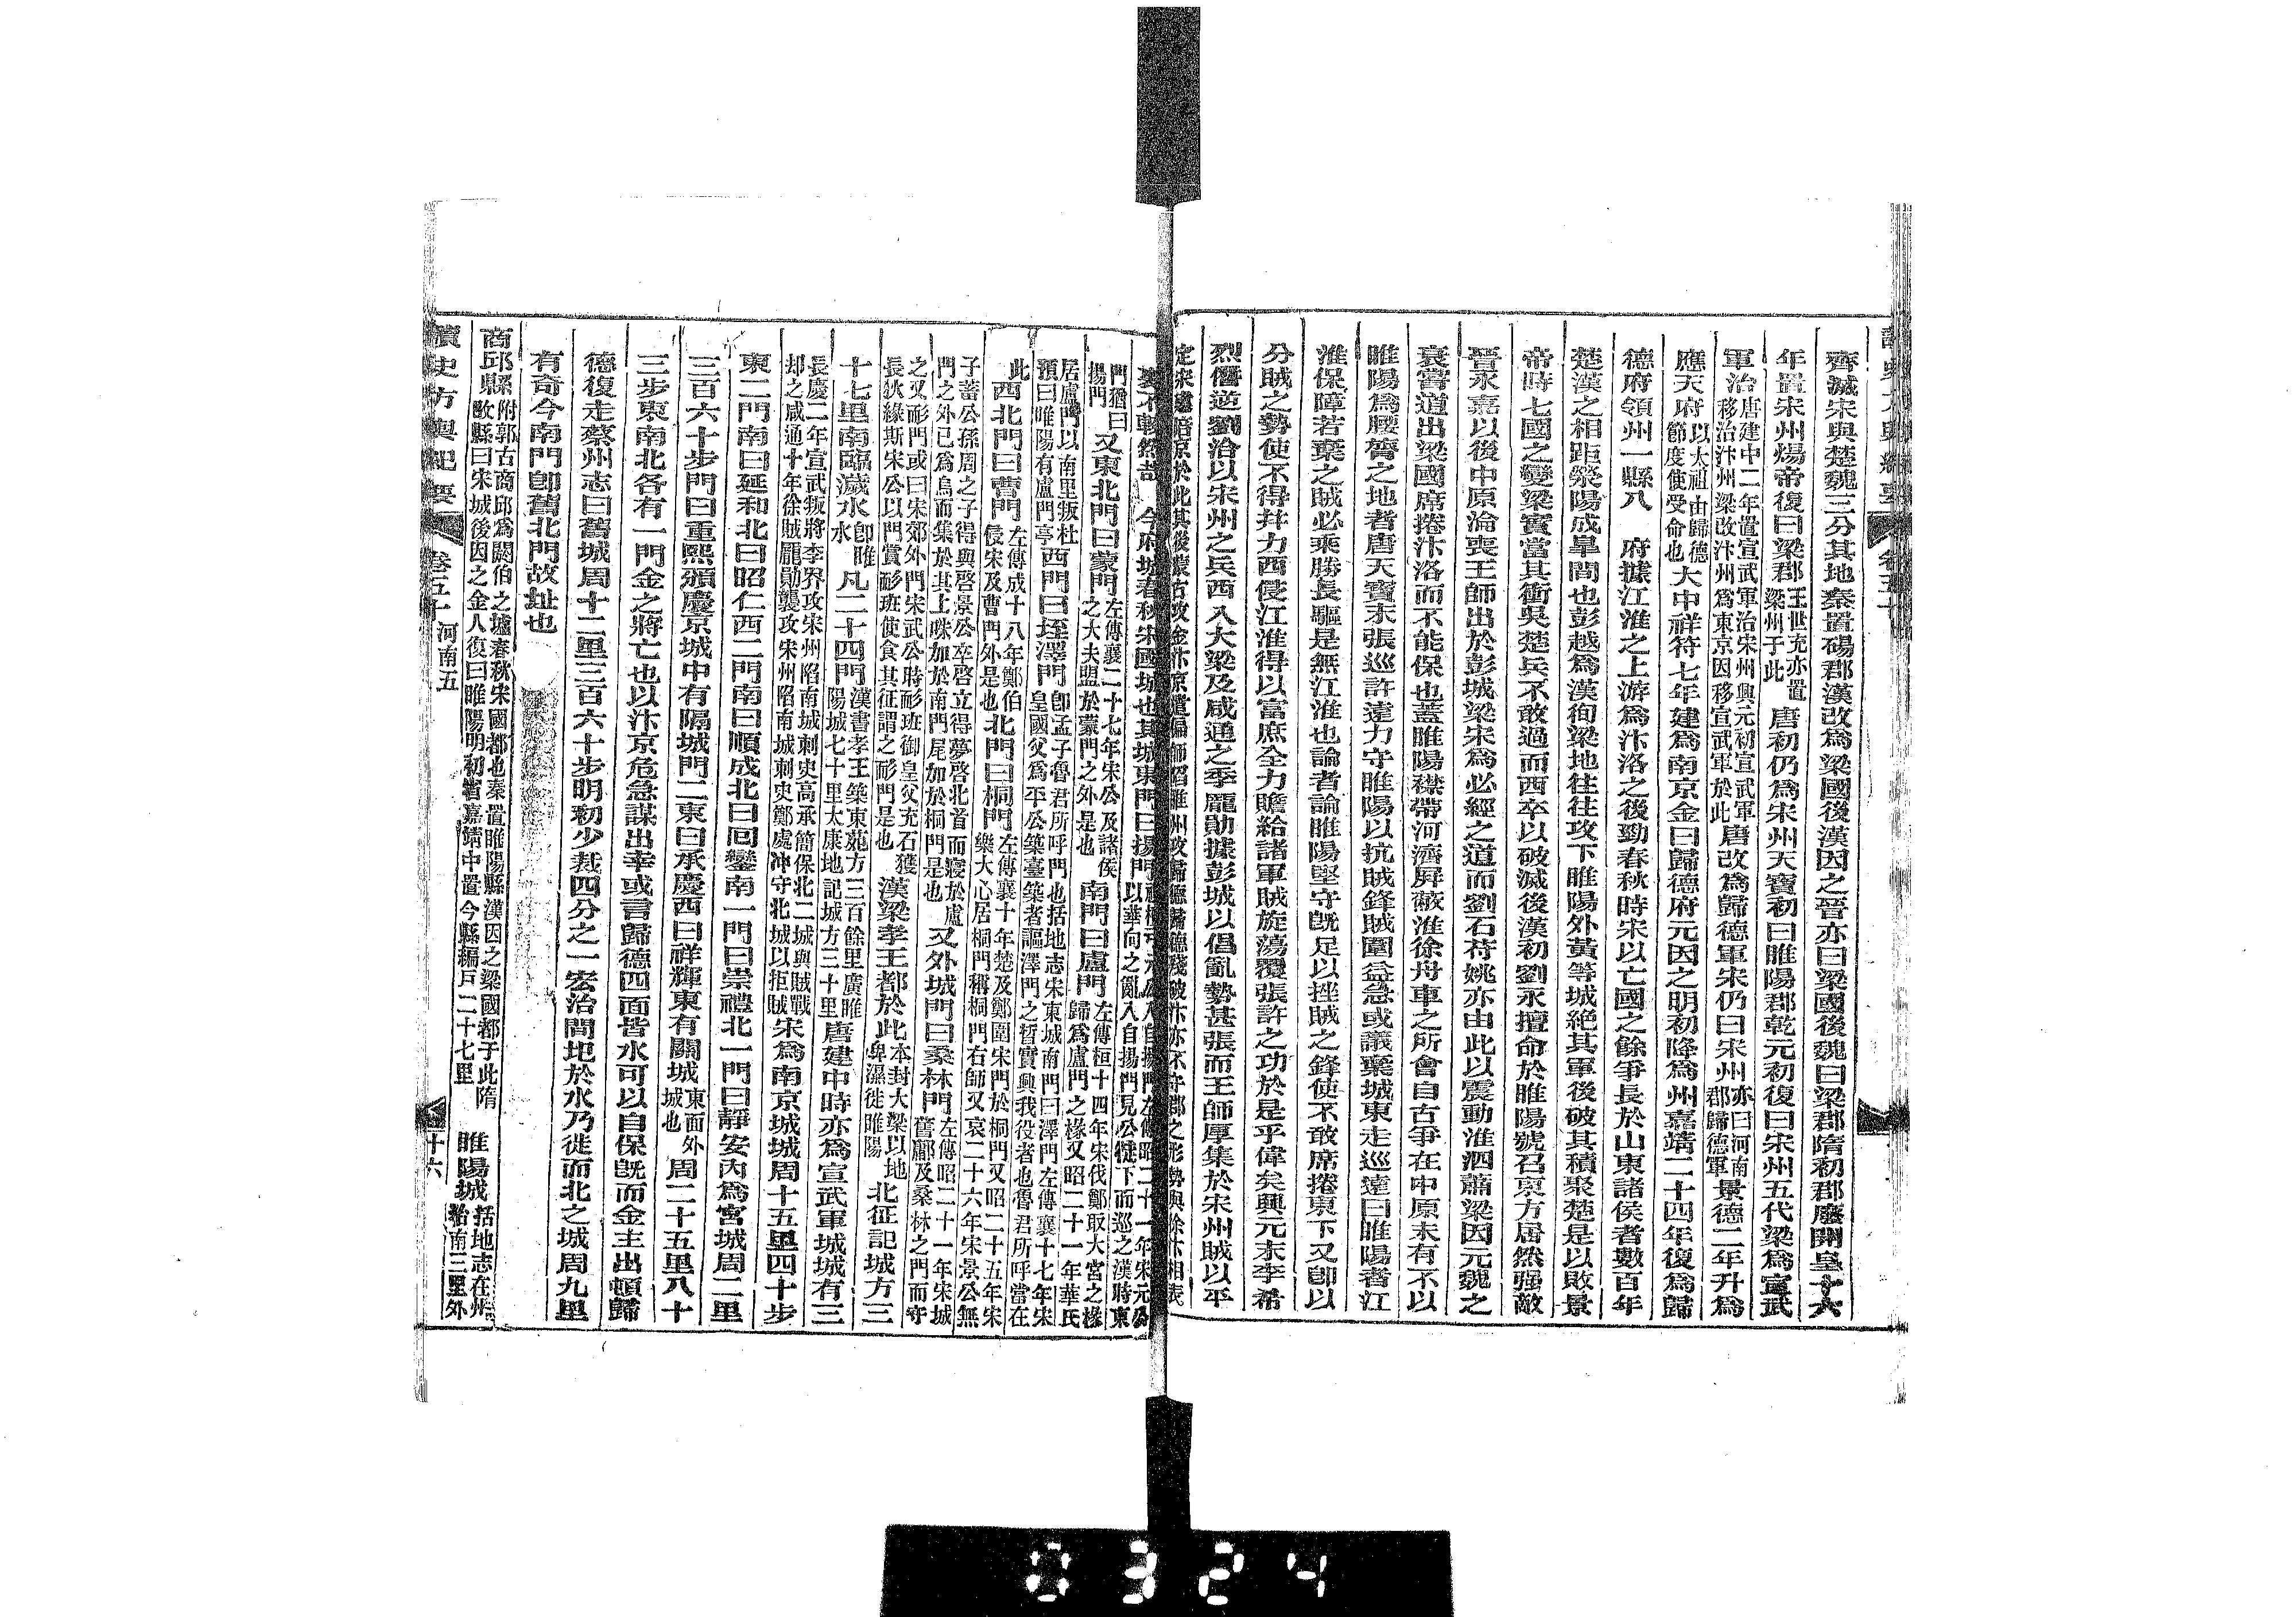 齊滅宋與楚魏三分其地秦置碭郡漢改爲梁國後漢因之晉亦曰梁國後魏曰梁郡隋初郡廢開皇十六
年置宋州煬帝復曰梁郡王世充亦置梁州于此唐初仍爲宋州天寶初曰睢陽郡乾元初復曰宋州五代梁爲宣武
軍治唐建中二年置宣武軍治宋州興元初宣武軍移治汴州梁改汴州爲東京因移宣武軍於此唐改爲歸德軍宋仍曰宋州亦曰河南郡歸德軍景德二年升爲
應天府以太祖由歸德節度使受命也大中祥符七年建爲南京金曰歸德府元因之明初降爲州嘉靖二十四年復爲歸
德府領州一縣八　府據江淮之上游爲汴洛之後勁春秋時宋以亡國之餘爭長於山東諸侯者數百年
楚漢之相距滎陽成臯間也彭越爲漢徇梁地往往攻下睢陽外黃等城絕其軍後破其積聚楚是以敗景
帝時七國之變梁實當其衝吳楚兵不敢過而西卒以破滅後漢初劉永擅命於睢陽號召東方居然强敵
晉永嘉以後中原淪喪王師出於彭城梁宋爲必經之道而劉石苻姚亦由此以震動淮泗蕭梁因元魏之
衰嘗道出梁國席捲汴洛而不能保也蓋睢陽襟帶河濟屏蔽淮徐舟車之所會自古爭在中原未有不以
睢陽爲腰膂之地者唐天寶末張巡許遠力守睢陽以抗賊鋒賊圍益急或議棄城東走巡遠曰睢陽者江
淮保障若棄之賊必乘勝長驅是無江淮也論者論睢陽堅守旣足以挫賊之鋒使不敢席捲東下又卽以
分賊之勢使不得幷力西侵江淮得以富庶全力贍給諸軍賊旋蕩覆張許之功於是乎偉矣興元末李希
烈僭逆劉洽以宋州之兵西入大梁及咸通之季龐勛據彭城以倡亂勢甚張而王師厚集於宋州賊以平
定宋建陪京於此其後蒙古攻金汴京遣偏師陷睢州攻歸德歸德殘破汴亦不守郡之形勢與徐汴相表
裏不較然哉　今府城春秋宋國城也其城東門曰揚門左傳昭二十一年宋元公以華向之亂入自揚門見公徒下而巡之漢時東
門猶曰揚門又東北門曰蒙門左傳襄二十七年宋公及諸侯之大夫盟於蒙門之外是也南門曰盧門左傳桓十四年宋伐鄭取大宮之椽歸爲盧門之椽又昭二十一年華氏
居盧門以南里叛杜預曰睢陽有盧門亭西門曰垤澤門卽孟子魯君所呼門也括地志宋東城南門曰澤門左傳襄十七年宋皇國父爲平公築臺築者謳澤門之晳實興我役者也魯君所呼當在
此西北門曰曹門左傳成十八年鄭伯侵宋及曹門外是也北門曰桐門左傳襄十年楚及鄭圍宋門於桐門又昭二十五年宋樂大心居桐門稱桐門右師又哀二十六年宋景公無
子蓄公孫周之子得與啓景公卒啓立得夢啓北首而寢於盧門之外已爲烏而集於其上咮加於南門尾加於桐門是也又外城門曰桑林門左傳昭二十一年宋城舊鄘及桑林之門而守
之又耏門或曰宋郊外門宋武公時耏班御皇父充石獲長狄緣斯宋公以門賞耏班使食其征謂之耏門是也漢梁孝王都於此本封大梁以地卑濕徙睢陽北征記城方三
十七里南臨濊水卽睢水凡二十四門漢書孝王築東苑方三百餘里廣睢陽城七十里太康地記城方三十里唐建中時亦爲宣武軍城城有三
長慶二年宣武叛將李㝏攻宋州陷南城刺史高承簡保北二城與賊戰却之咸通十年徐賊龐勛襲攻宋州陷南城刺史鄭處冲守北城以拒賊宋爲南京城城周十五里四十步
東二門南曰延和北曰昭仁西二門南曰順成北曰回鑾南一門曰崇禮北一門曰靜安內爲宮城周二里
三百六十步門曰重熙頒慶京城中有隔城門二東曰承慶西曰祥輝東有關城東面外城也周二十五里八十
三步東南北各有一門金之將亡也以汴京危急謀出幸或言歸德四面皆水可以自保旣而金主出頓歸
德復走蔡州志曰舊城周十二里三百六十步明初少裁四分之一宏治間圮於水乃徙而北之城周九里
有奇今南門卽舊北門故址也
商邱縣附郭古商邱爲閼伯之墟春秋宋國都也秦置睢陽縣漢因之梁國都于此隋改縣曰宋城後因之金人復曰睢陽明初省嘉靖中置今縣編戶二十七里　睢陽城括地志在州治南三里外
讀史方輿紀要　卷五十　河南五　十六